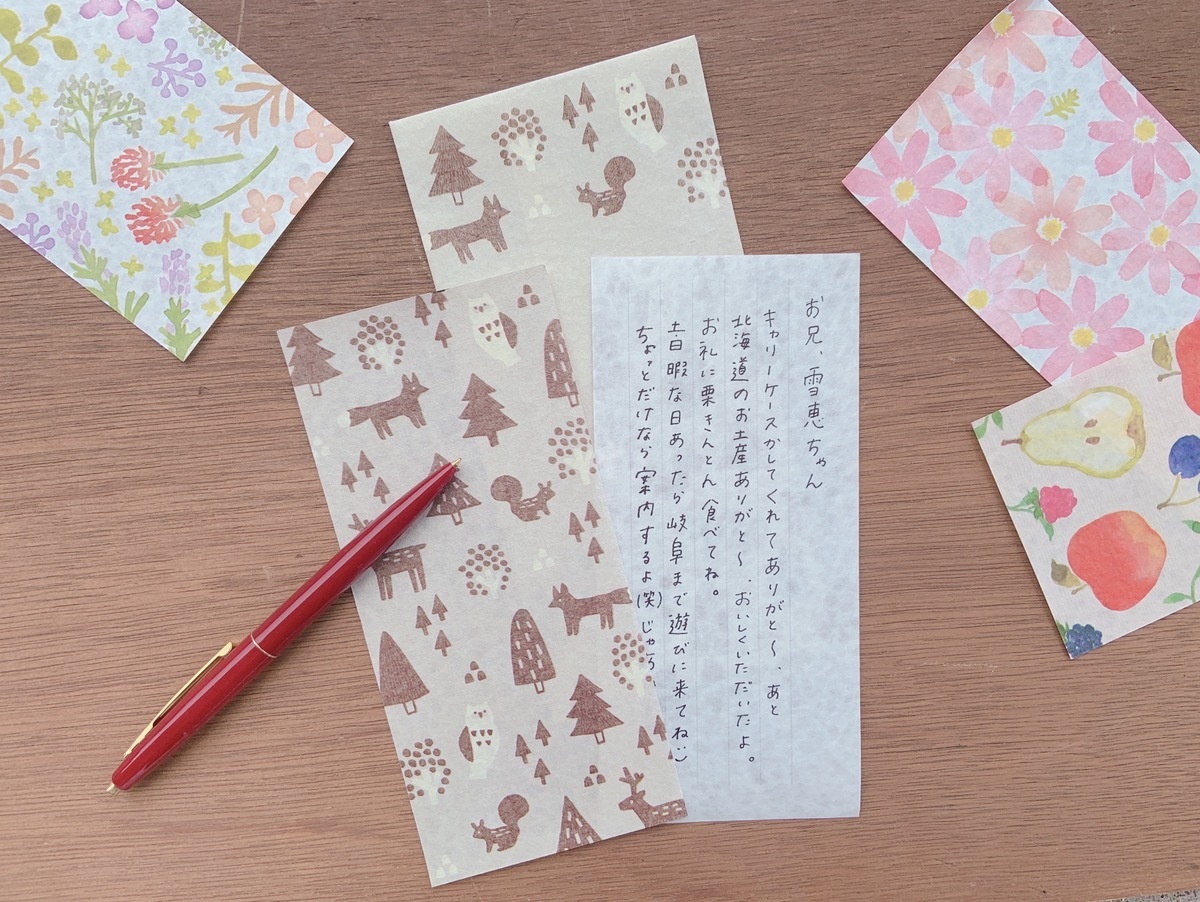 お兄、雪恵ちゃん
キャリーケースかしてくれてありがと〜、あと
北海道のお土産ありがと〜、おいしくいただいたよ。
お礼に栗きんとん食べてね。
土日暇な日あったら岐阜まで遊びに来てね:)
ちょっとだけなら案内するよ(笑)じゃ